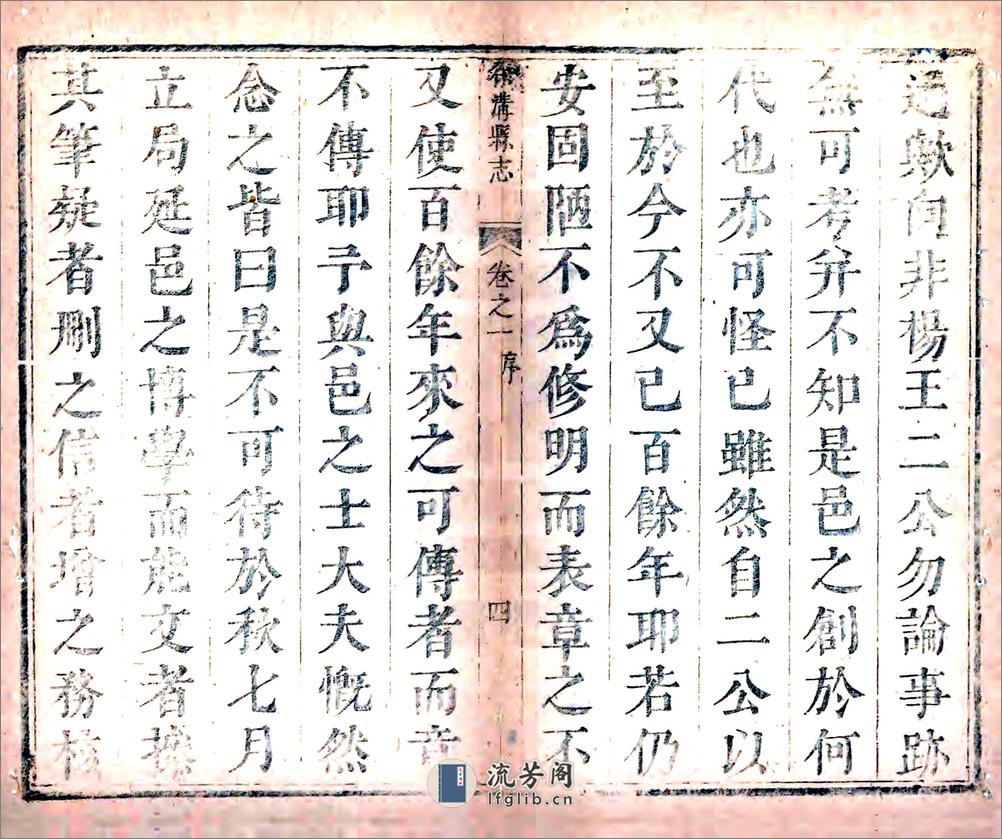 過歟向非楊王二公勿論事跡
無可考并不知是邑之創於何
代也亦可怪已雖然自二公以
至於今不又已百餘年耶若仍
安固陋不為修明而表章之不
徐溝縣志
卷之一 序
四
又使百餘年來之可傳者而竟
不傳耶予與邑之士大夫慨然
念之皆曰是不可待於秋七月
立局延邑之博學而能文者操
其筆疑者刪之信者增之務核
流芳阁
lfglib.cn